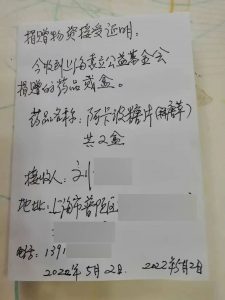 捐赠物资接受证明:
今收到上海袁立公益基金会
捐赠的药品贰盒。
药品名称:阿卡波糖片(
共2盒
接收人:刘
地址:上海市普陀区
电话:1391
2022年5月2日. 2022年5月2日